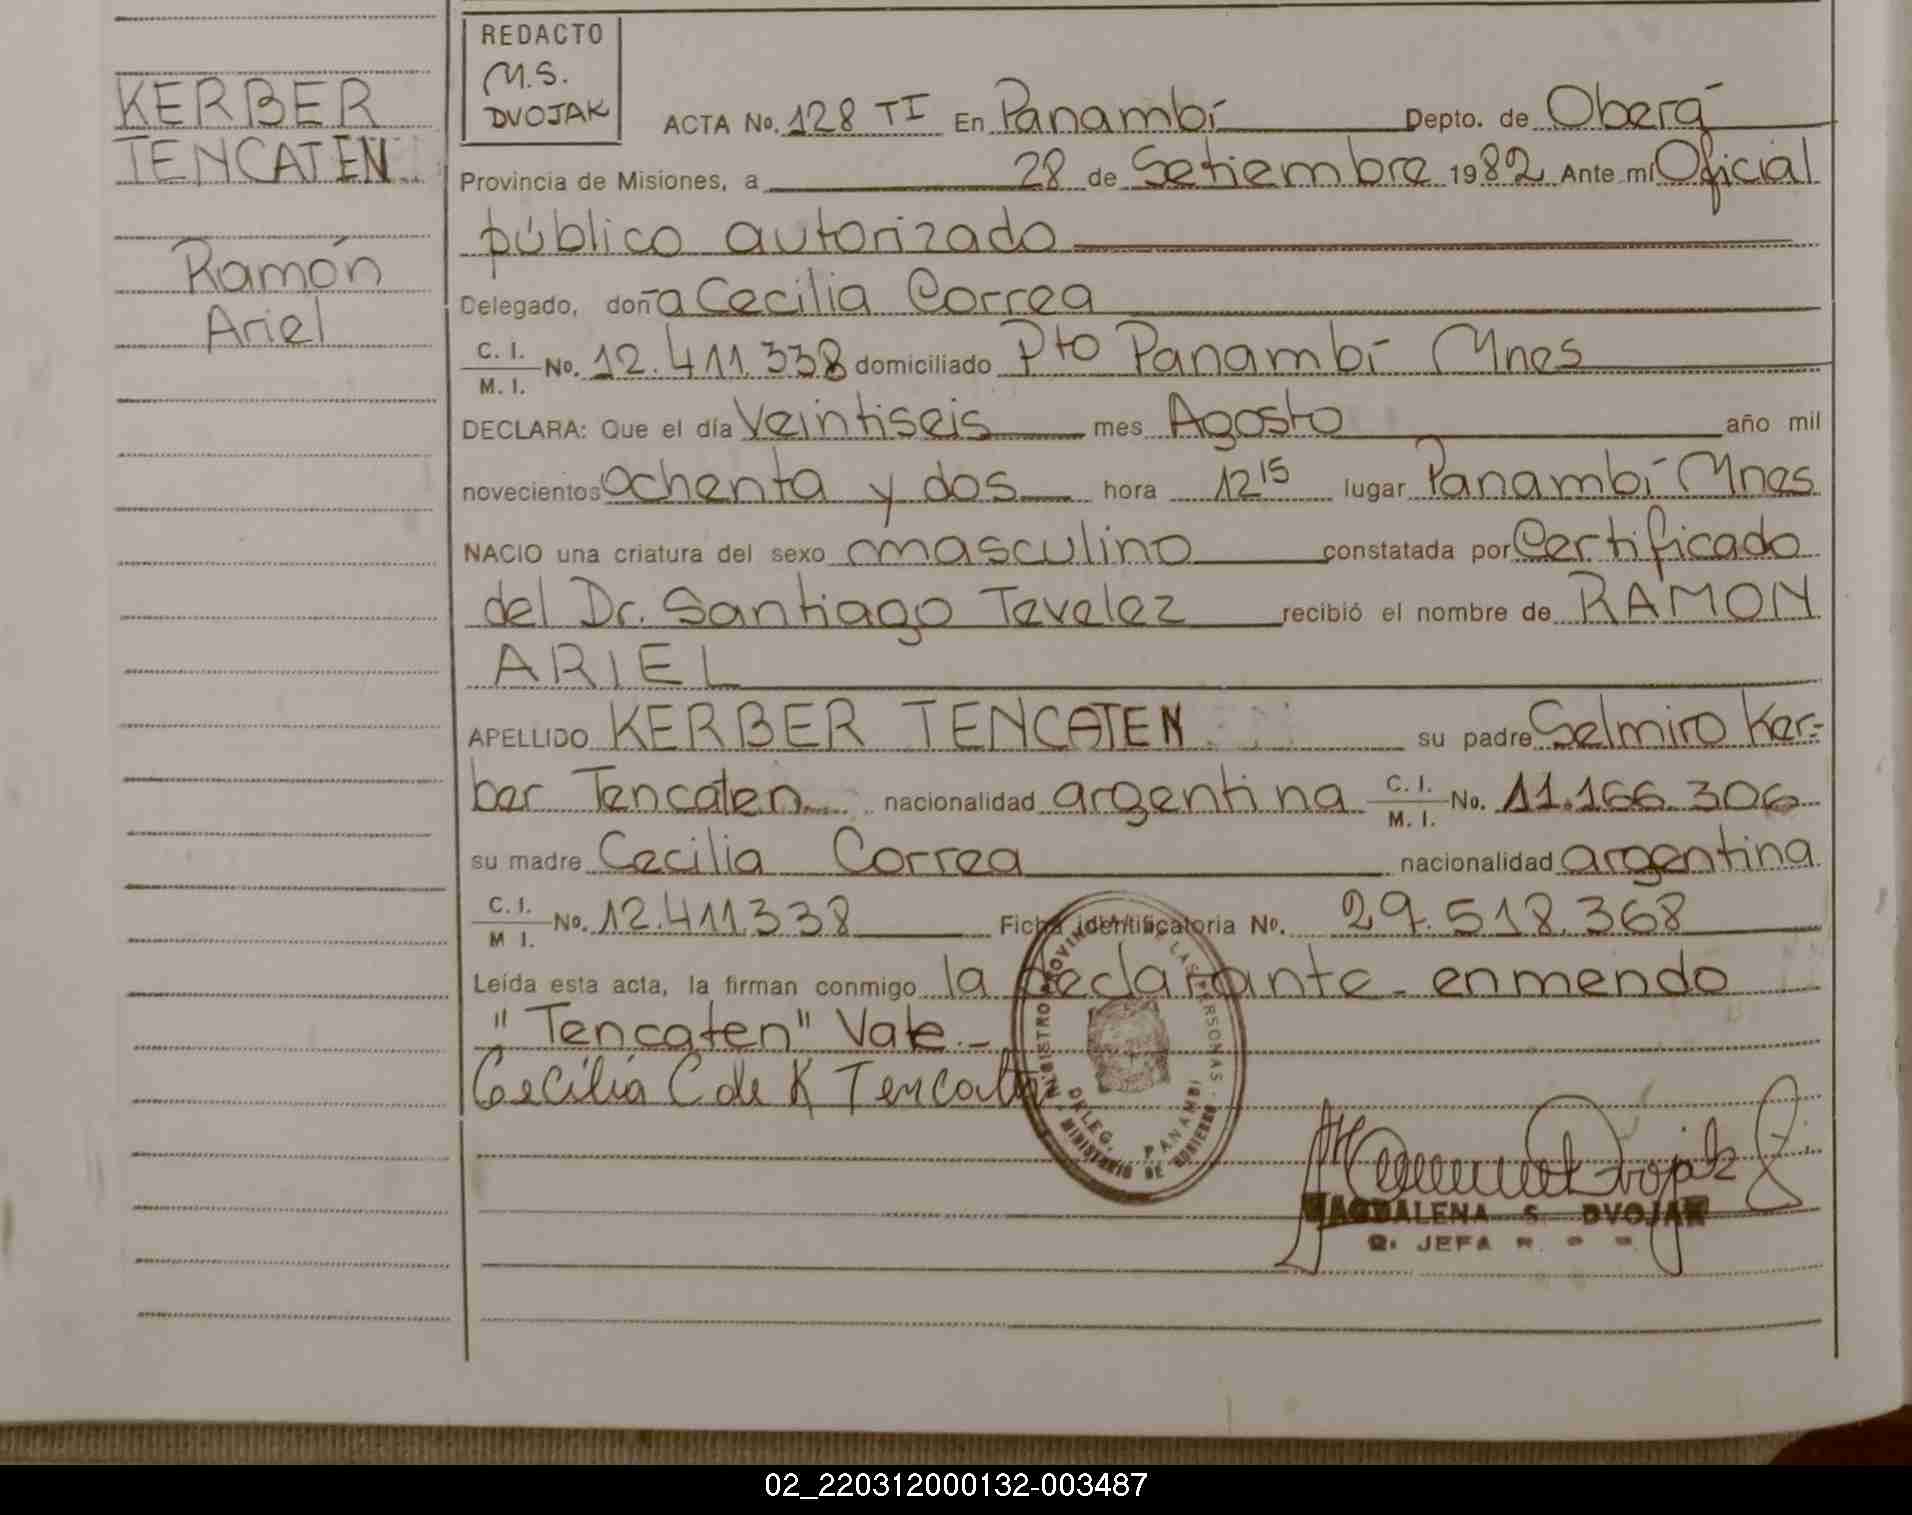 KERBER
TENCATEN
Ramón
Ariel
REDACTO
M.S.
DVOJAK
ACTA No. 128 TI En Panambí Depto. de Oberá
Provincia de Misiones, a 28 de Setiembre 1982 Ante mí Oficial
público autorizado
Delegado, doña Cecilia Correa
C. I. M. I. No. 12.411.338 domiciliado Pto Panambí Mnes
DECLARA: Que el día Veintiseis mes Agosto año mil
novecientos ochenta y dos hora 12 15 lugar Panambí Mnes
NACIO una criatura del sexo masculino constatada por Certificado
del Dr. Santiago Tevelez recibió el nombre de RAMON
ARIEL
APELLIDO KERBER TENCATEN su padre Selmiro Ker=
ber Tencaten nacionalidad argentina C. I. M. I. No. 11.166.306
su madre Cecilia Correa nacionalidad argentina
C. I. M I. No. 12.411.338 Ficha identificatoria No. 29.518.368
Leída esta acta, la firman conmigo la declarante - enmendo
"Tencaten" Vale.-
Cecilia C de K Tencaten
REGISTRO PROVINCIAL DE LAS PERSONAS
DELEG. PANAMBI
MINISTERIO DE GOBIERNO
MAGDALENA S. DVOJAK
JEFA
02_220312000132-003487